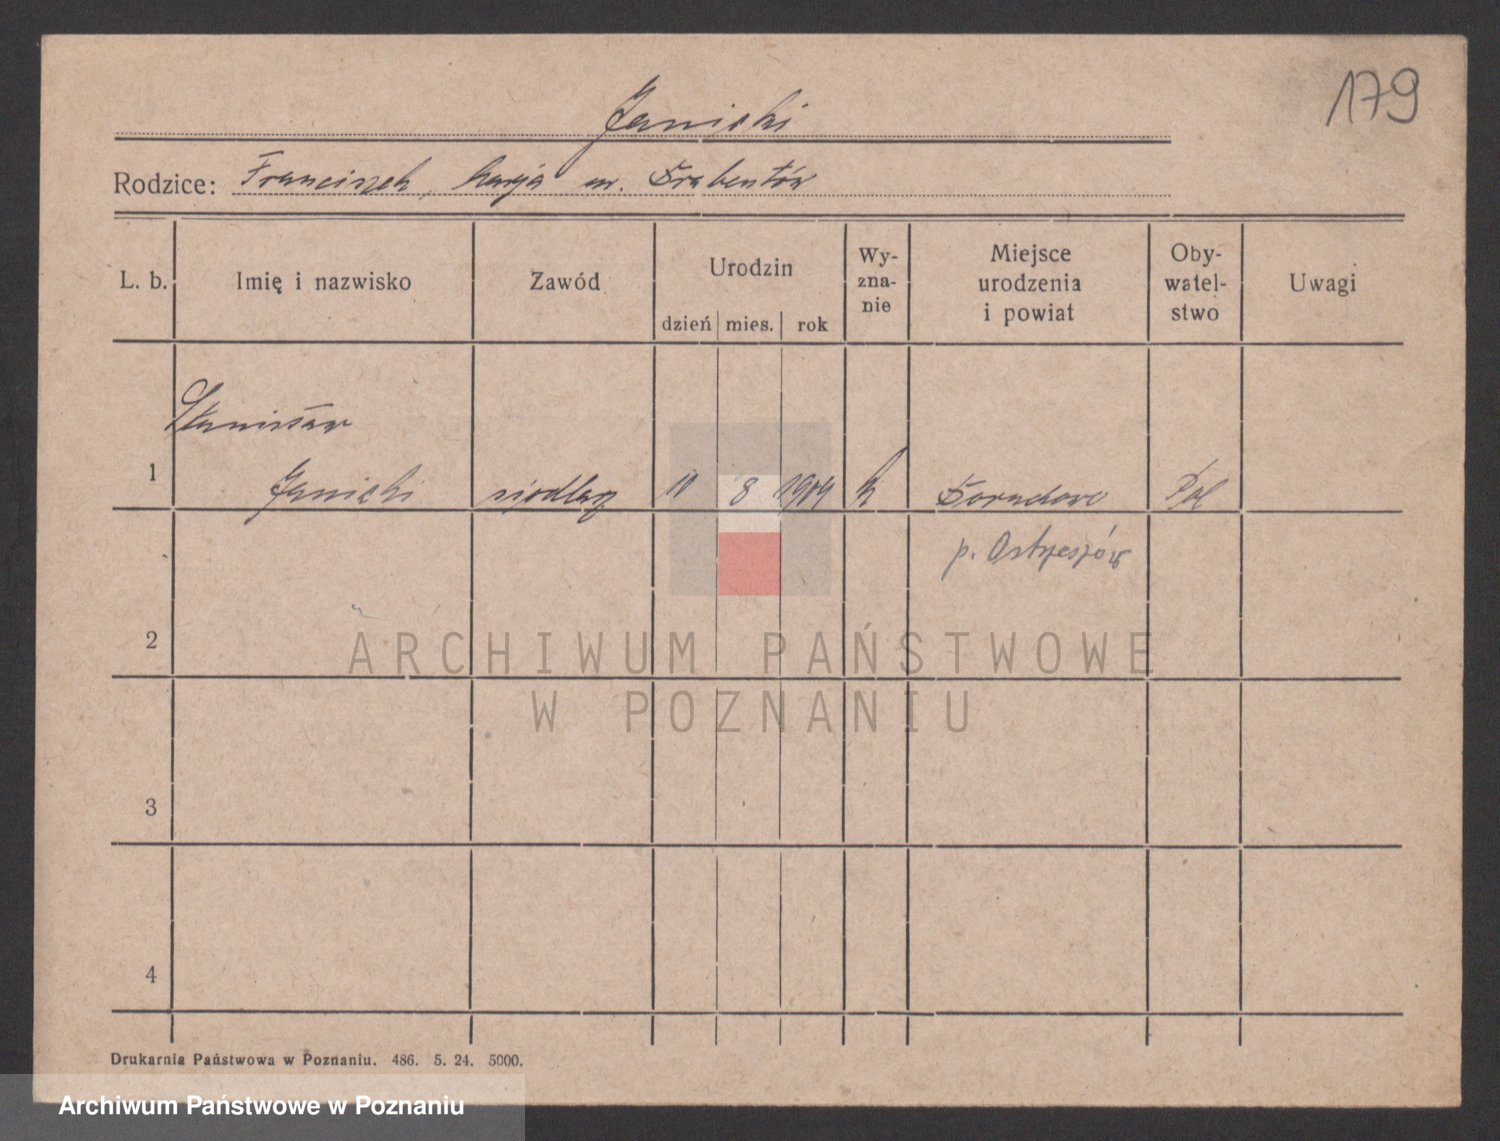 179
Janicki
Rodzice: Franciszek, Marja ur.
L. b. Imię i nazwisko Zawód Urodzin dzień mies. rok Wy-zna-nie Miejsce urodzenia i powiat Oby-watel-stwo Uwagi
Stanisław
1 Janicki siodlarz 8 1904 k Pol
p. Ostrzeszów
2
3
4
Drukarnia Państwowa w Poznaniu. 486. 5. 24. 5000.
ARCHIWUM PAŃSTWOWE
W POZNANIU
Archiwum Państwowe w Poznaniu